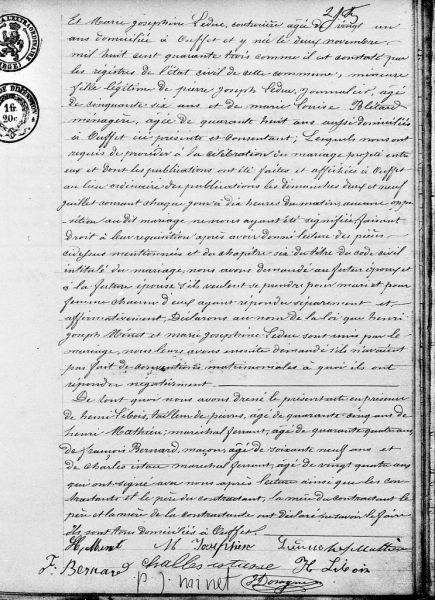 Et Marie Josephine Leduc, couturière agée de vingt un
ans domiciliée à Ouffet et y née le deux novembre
mil huit cent quarante trois comme il est constaté par
les registres de l'état civil de cette commune, mineure
fille légitime de pierre Joseph Leduc, journalier, agé
de cinquante six ans et de marie Louise
ménagère, agée de quarante huit ans aussi domiciliés
à Ouffet ici présents et consentant; Lesquels nous ont
requis de procéder à la célébration du mariage projeté entre
eux et dont les publications ont été faites et affichées à Ouffet
au lieu ordinaire des publications les dimanches deux et neuf
juillet courant chaque jour à dix heures du matin, aucune oppo-
sition audit mariage ne nous ayant été signifiée, faisant
droit à leur requisition après avoir donné lecture des pièces
cidessus mentionnées et du chapitre six du titre du code civil
intitulé du mariage, nous avons demandé au futur époux et
à la future épouse s'ils veulent se prendre pour mari et pour
femme chacun d'eux ayant répondu séparement et
affirmativement, Déclarons au nom de la loi que henri
joseph et marie josephine Leduc sont unis par le
mariage, nous leurs avons ensuite demandé s'ils n'avaient
pas fait de conventions matrimoniales à quoi ils ont
répondu négativement
De tout quoi nous avons dressé le présent acte en présence
de henri Libois, tailleur de pierres, agé de quarante cinq ans de
henri Mathieu, maréchal ferrant, agé de quarante quatre ans
de françois Bernard, maçon, agé de soixante neuf ans et
de Charles maréchal ferrant, agé de vingt quatre ans
qui ont signé avec nous après lecture ainsi que les con-
tractants et le père du contractant, la mère du contractant le
père et la mère de la contractante ont déclaré ne savoir le faire
ils sont tous domiciliés à Ouffet.
M Josephine Leduc h Mathieu
F. Bernard H Libois